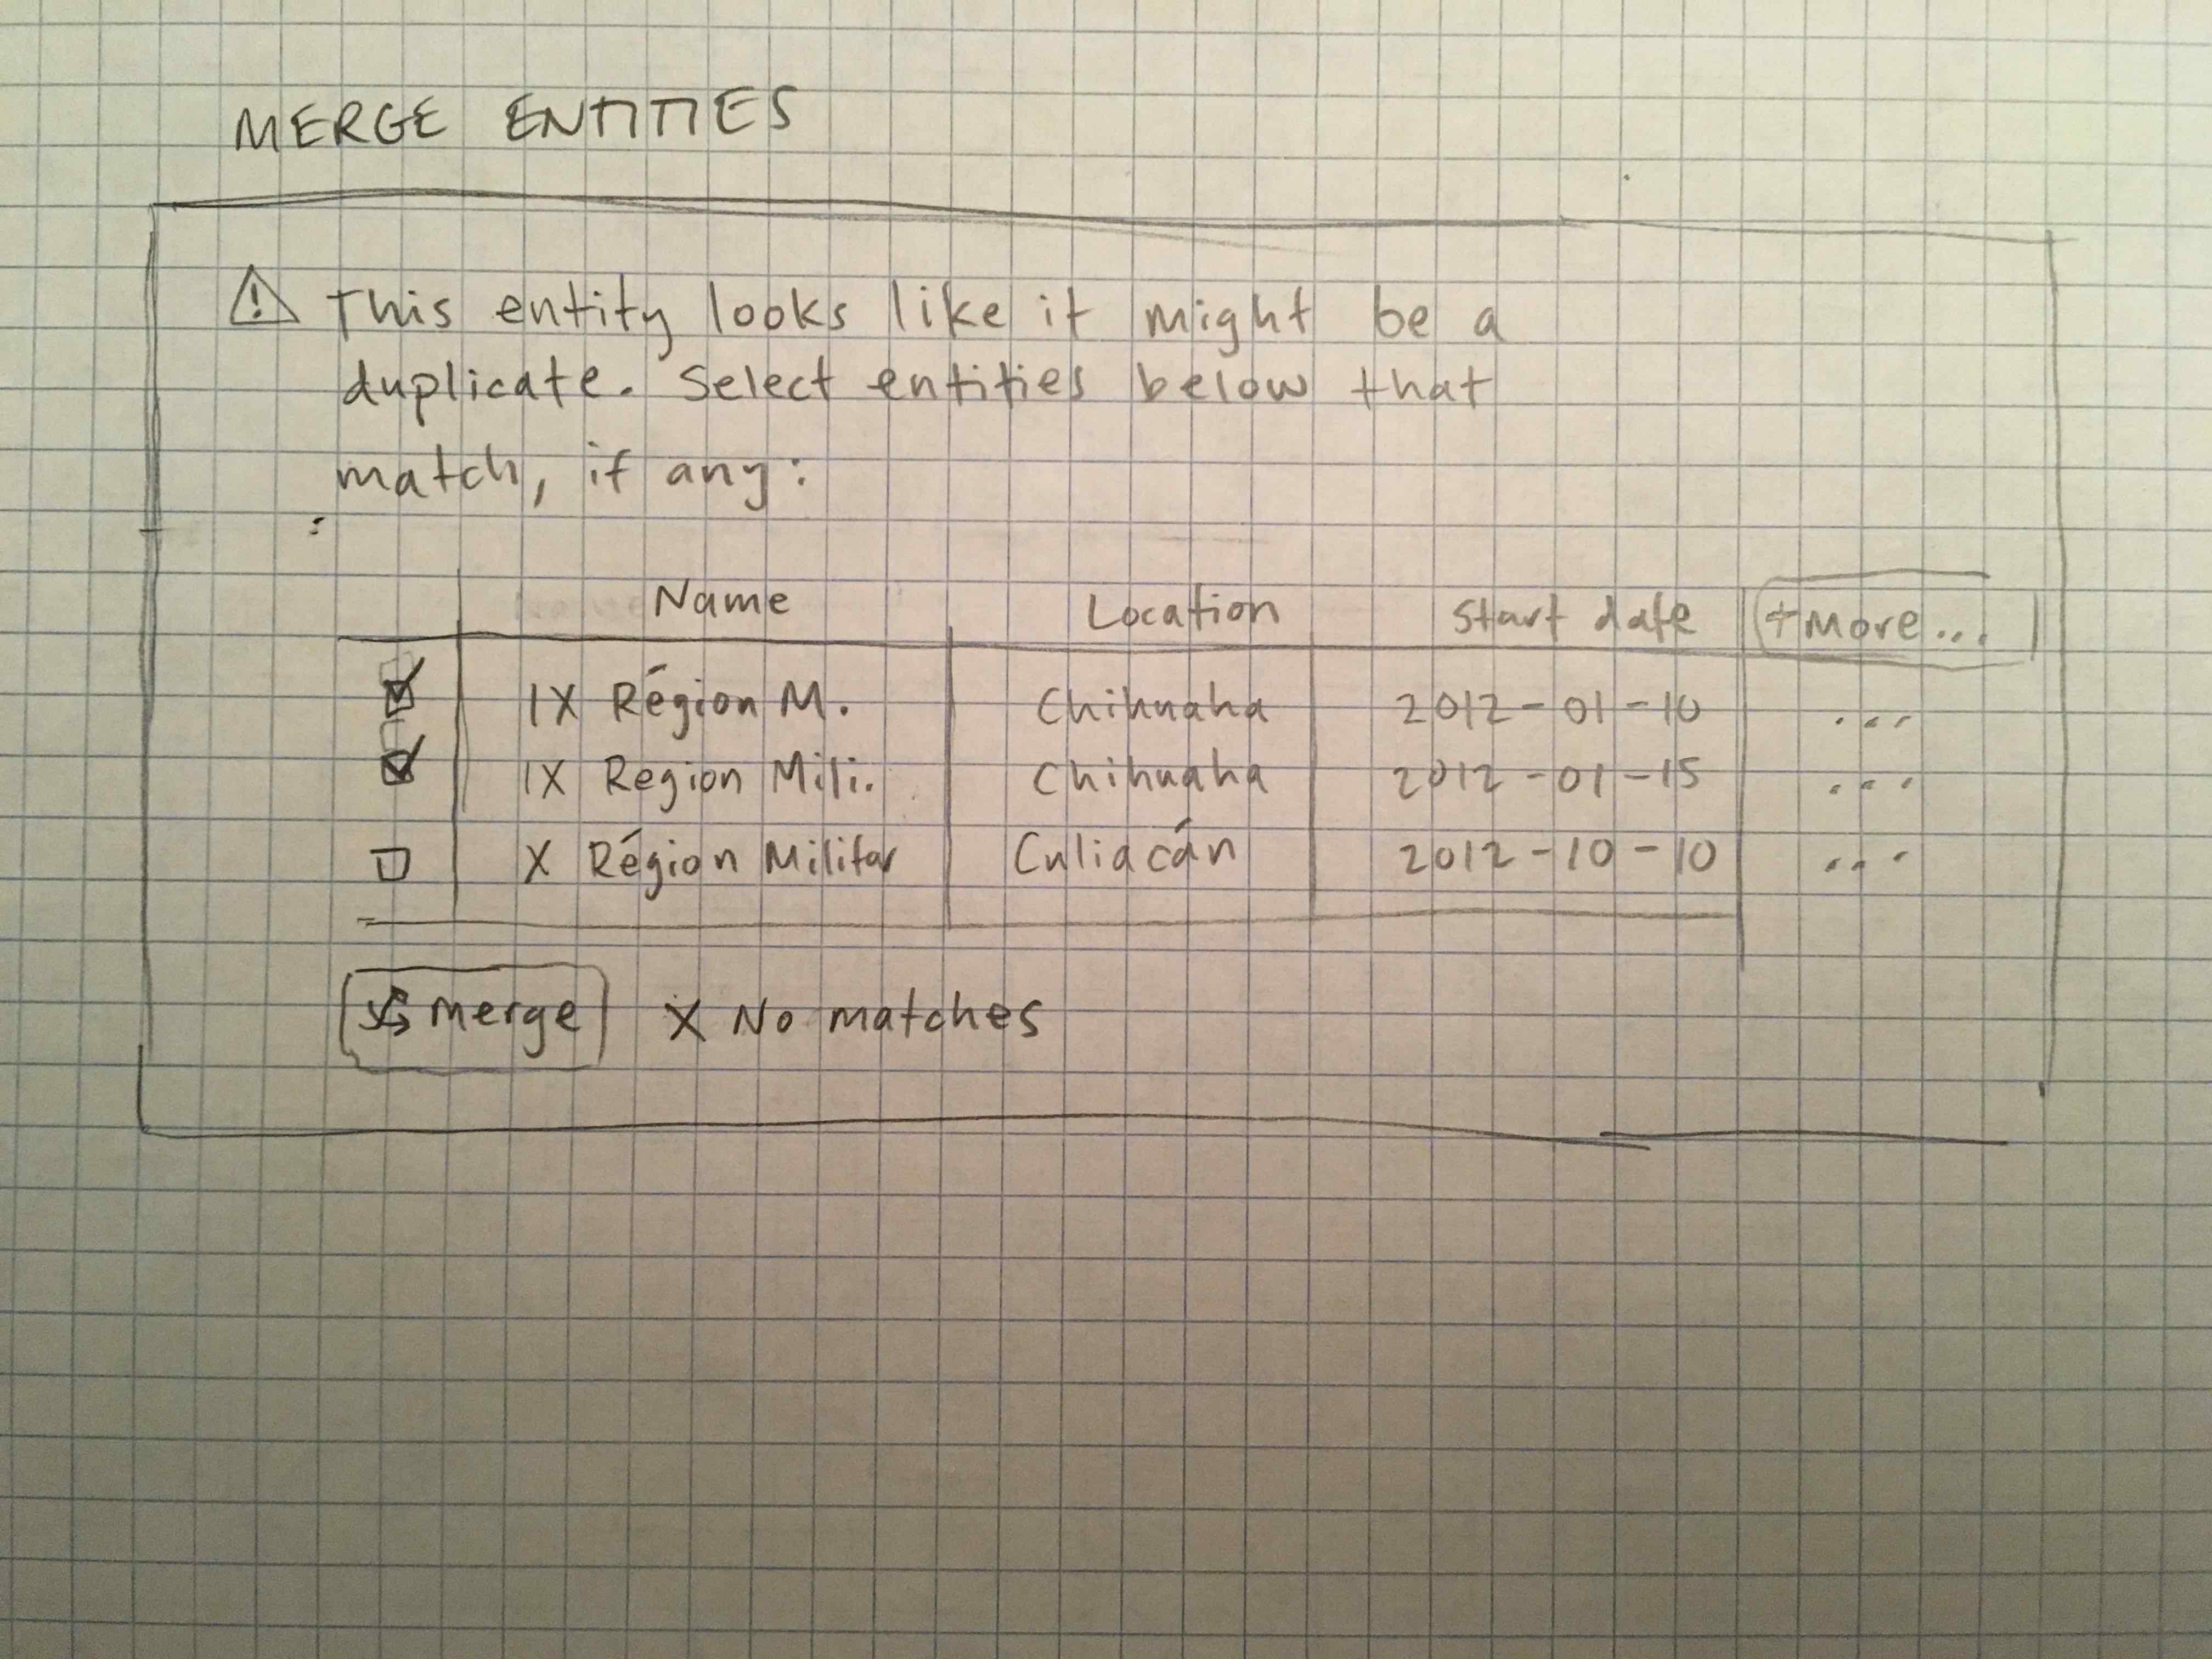 MERGE ENTITIES
⚠ This entity looks like it might be a
duplicate. Select entities below that
match, if any:
Name Location Start date +More...
☑ IX Région M. Chihuaha 2012-01-10 ...
☑ IX Region Mili. Chihuaha 2012-01-15 ...
☐ X Région Militar Culiacán 2012-10-10 ...
merge X No matches